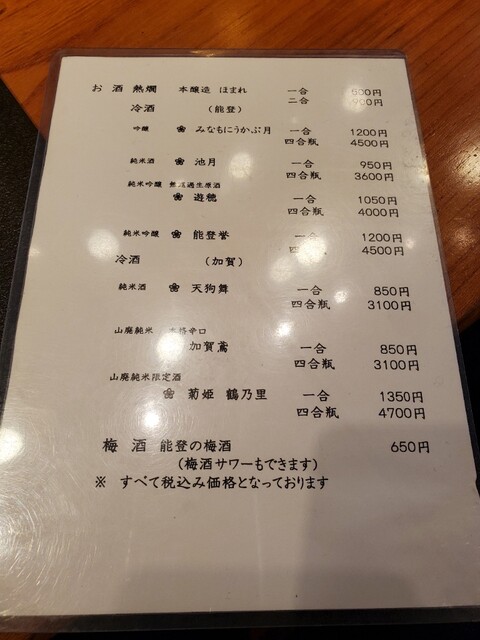 お酒 熱燗 本醸造 ほまれ 一合 500円
二合 900円
冷酒 (能登)
吟醸 みなもにうかぶ月 一合 1200円
四合瓶 4500円
純米酒 池月 一合 950円
四合瓶 3600円
純米吟醸 無濾過生原酒
遊穂 一合 1050円
四合瓶 4000円
純米吟醸 能登誉 一合 1200円
四合 4500円
冷酒 (加賀)
純米酒 天狗舞 一合 850円
四合瓶 3100円
山廃純米 本格辛口
加賀鳶 一合 850円
四合瓶 3100円
山廃純米限定酒
菊姫 鶴乃里 一合 1350円
四合瓶 4700円
梅酒 能登の梅酒 650円
(梅酒サワーもできます)
※ すべて税込み価格となっております